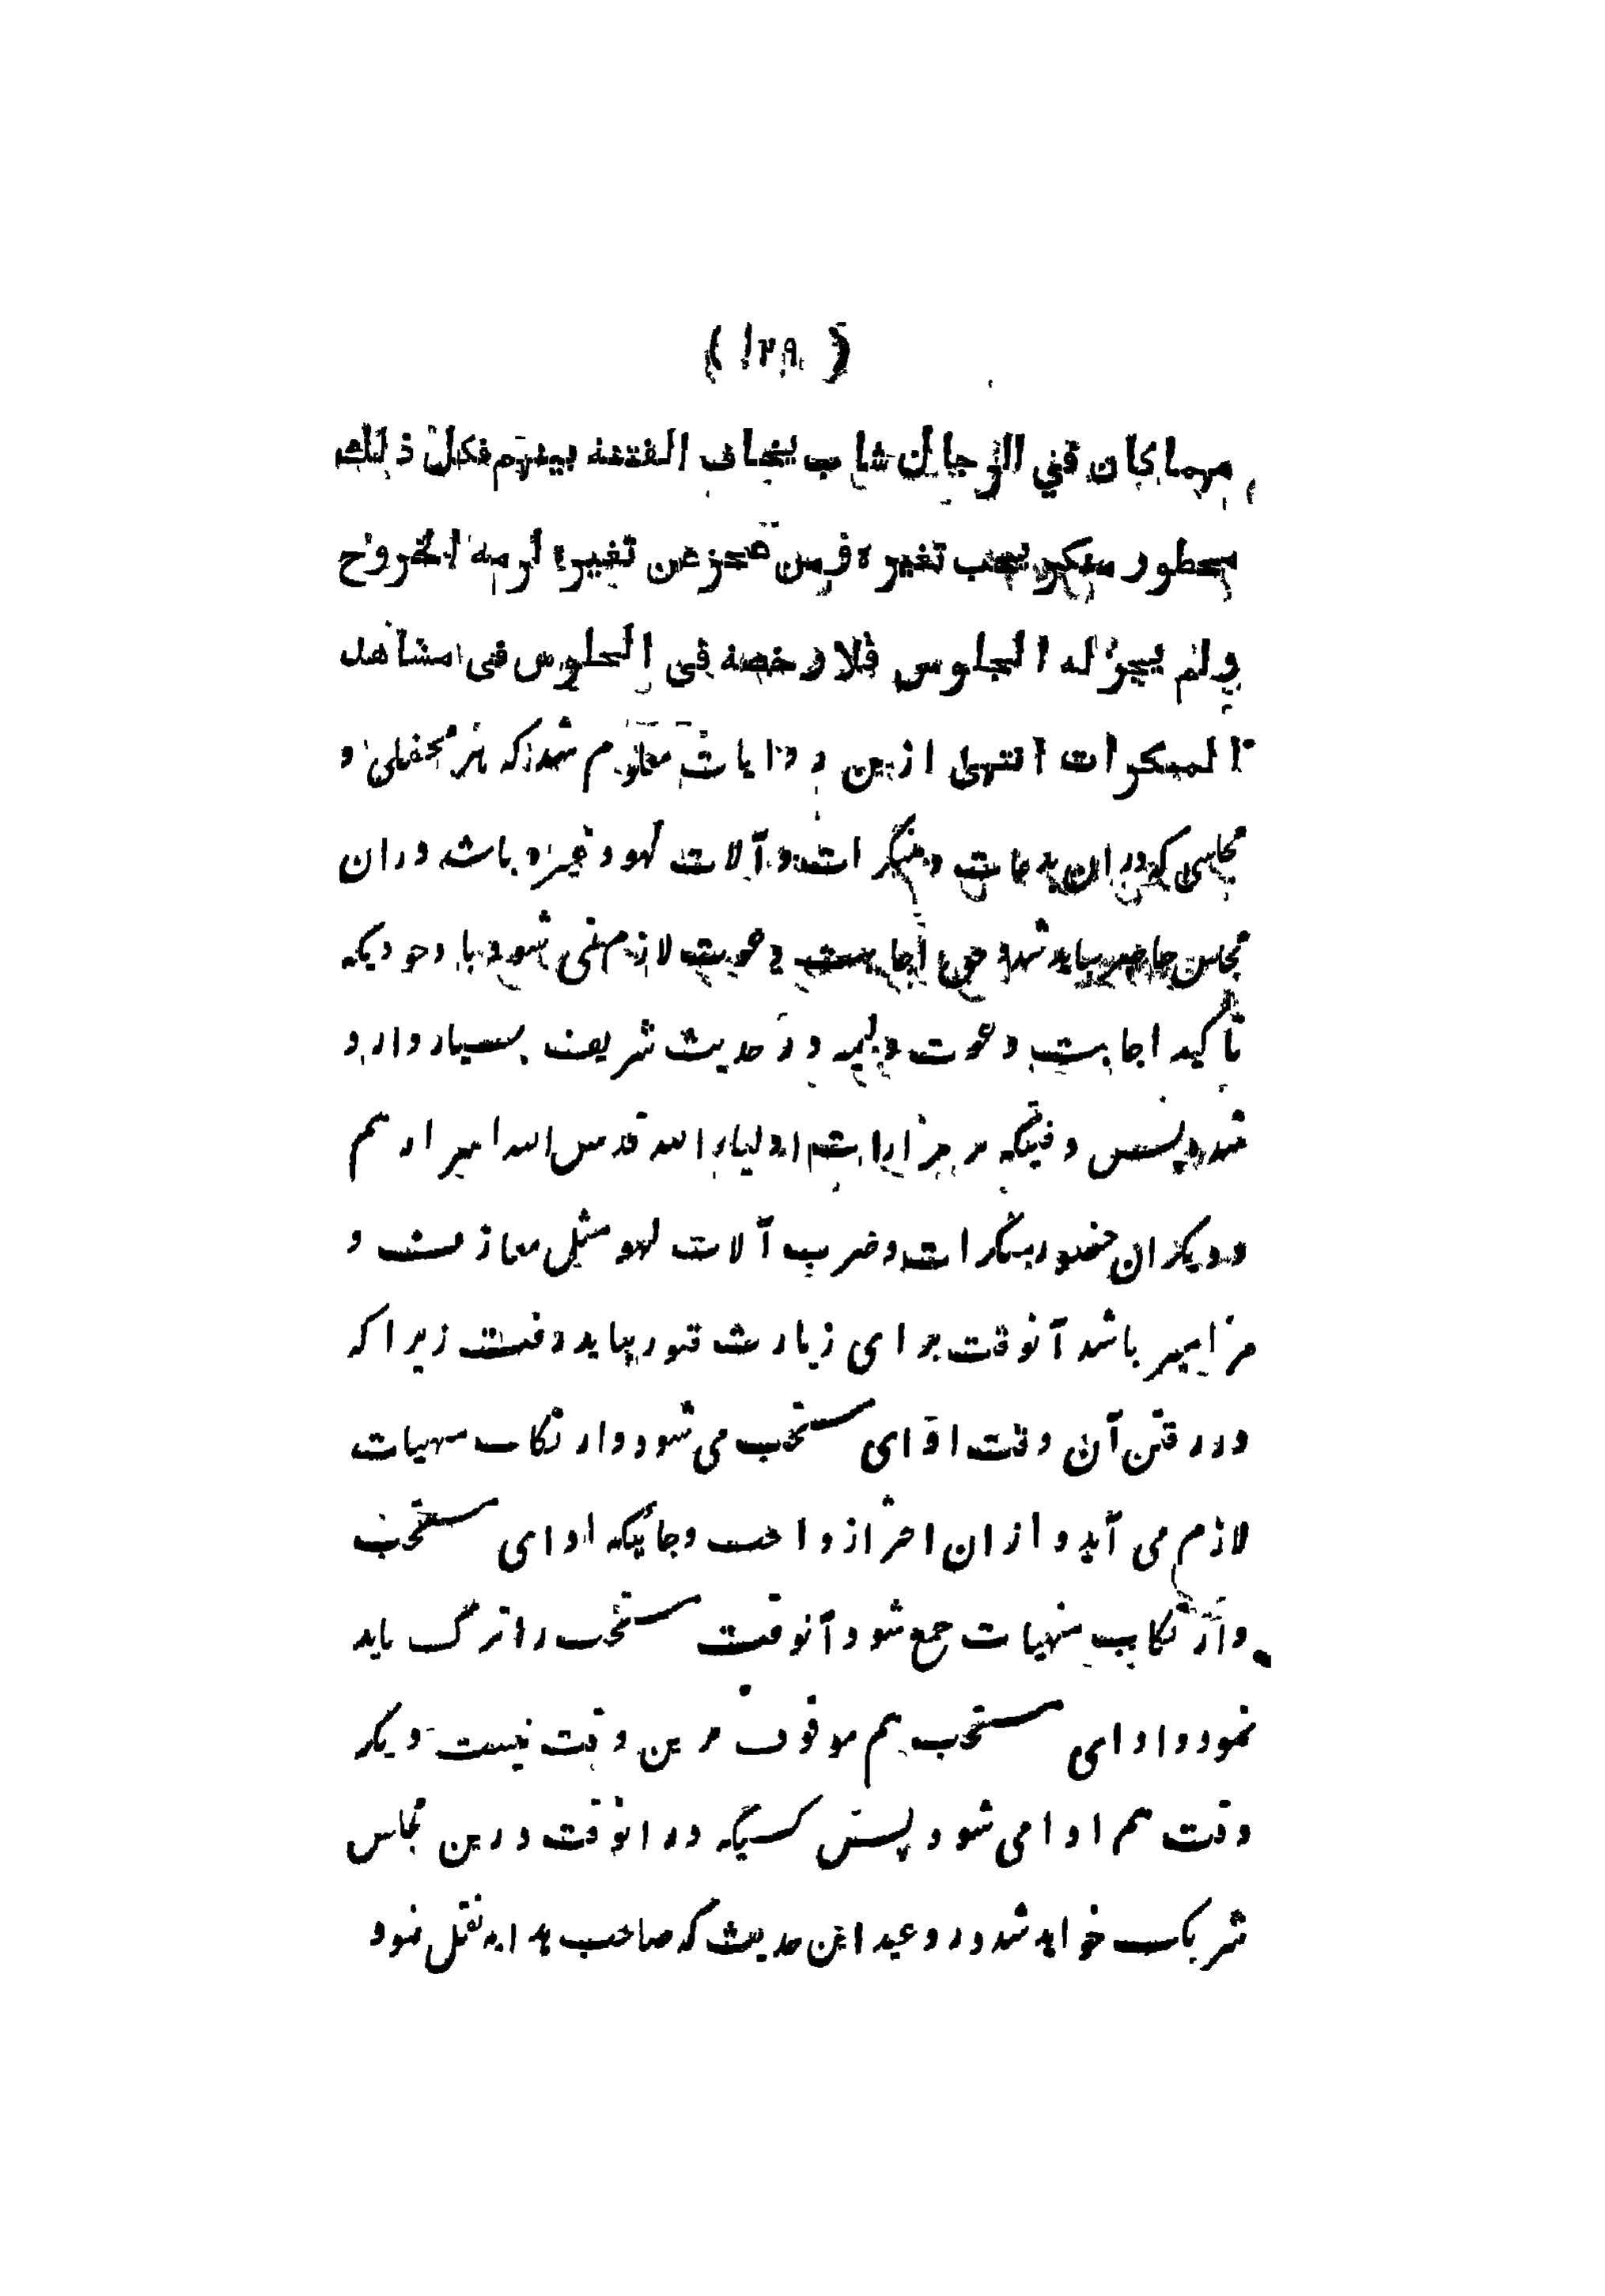 ( ۱۲۹ )
مهما كان في الرجال شاب يخاف الفتنة بينهم فكل ذلك
محظور منكر يجب تغييره فمن عجز عن تغييره لزمه الخروج
ولم يجز له الجلوس فلا رخصة في الجلوس في مشاهد
المنكرات انتهى ازین روایات معلوم شد که هر محفلی و
مجلسی که دران بدعات و منکرات و آلات لهو و غیره باشد دران
مجلس حاضر نباید شد حق اجابت دعوت لازم نمی شود با وجودیکه
تاکید اجابت دعوت ولیمه در حدیث شریف بسیار وارد
شده پس وقتیکه بر مزارات اولیاء الله قدس الله اسرارهم
و دیگران حضور منکرات و ضرب آلات لهو مثل معازف و
مزامیر باشد آنوقت برای زیارت قبور نباید رفت زیرا که
در رفتن آن وقت ادای مستحب می شود و ارتکاب منهیات
لازم می آید و ازان احتراز واجب و جائیکه ادای مستحب
و ارتکاب منهیات جمع شود آنوقت مستحب را ترک باید
نمود و ادای مستحب هم موقوف برین وقت نیست دیگر
وقت هم ادا می شود پس کسیکه در انوقت درین مجلس
شریک خواهد شد در وعید این حدیث که صاحب هدایه نقل نمود